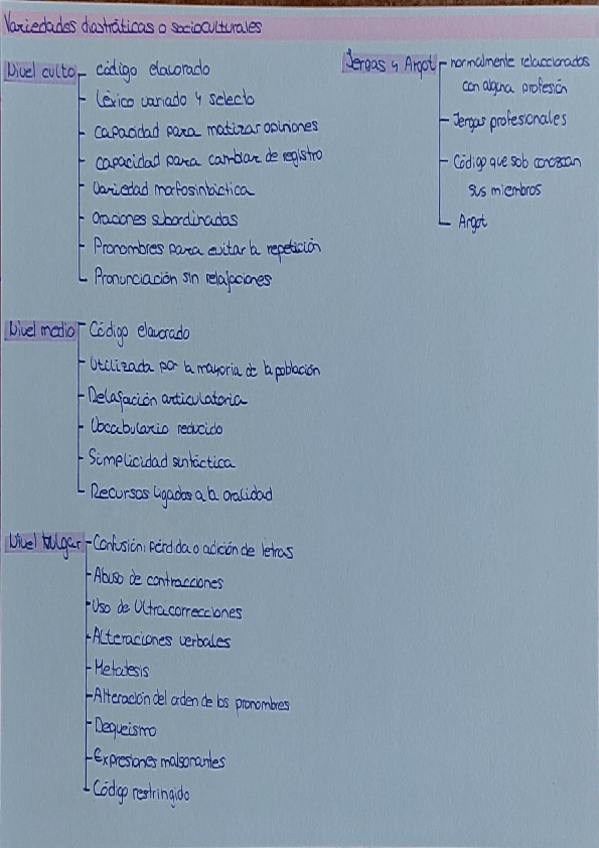 Variedades diastráticas o socioculturales
Nivel culto
Código elavorado
Léxico variado y selecto
Capacidad para matizar opiniones
Capacidad para cambiar de registro
Variedad morfosintáctica
Oraciones subordinadas
Pronombres para evitar la repetición
Pronunciación sin relajaciones
Nivel medio
Código elavorado
Utilizada por la mayoria de la población
Delajación articulatoria
Vocabulario reducido
Simplicidad sintáctica
Recursos ligados a la oralidad
Nivel bulgar
Confusión, pérdida o adición de letras
Abuso de contracciones
Uso de Ultracorrecciones
Alteraciones verbales
Metatesis
Alteración del orden de los pronombres
Dequeismo
Expresiones malsonantes
Código restringido
Jergas y Argot
normalmente relaccionados
con alguna profesión
Jergas profesionales
Código que sob conozcan
sus miembros
Argot